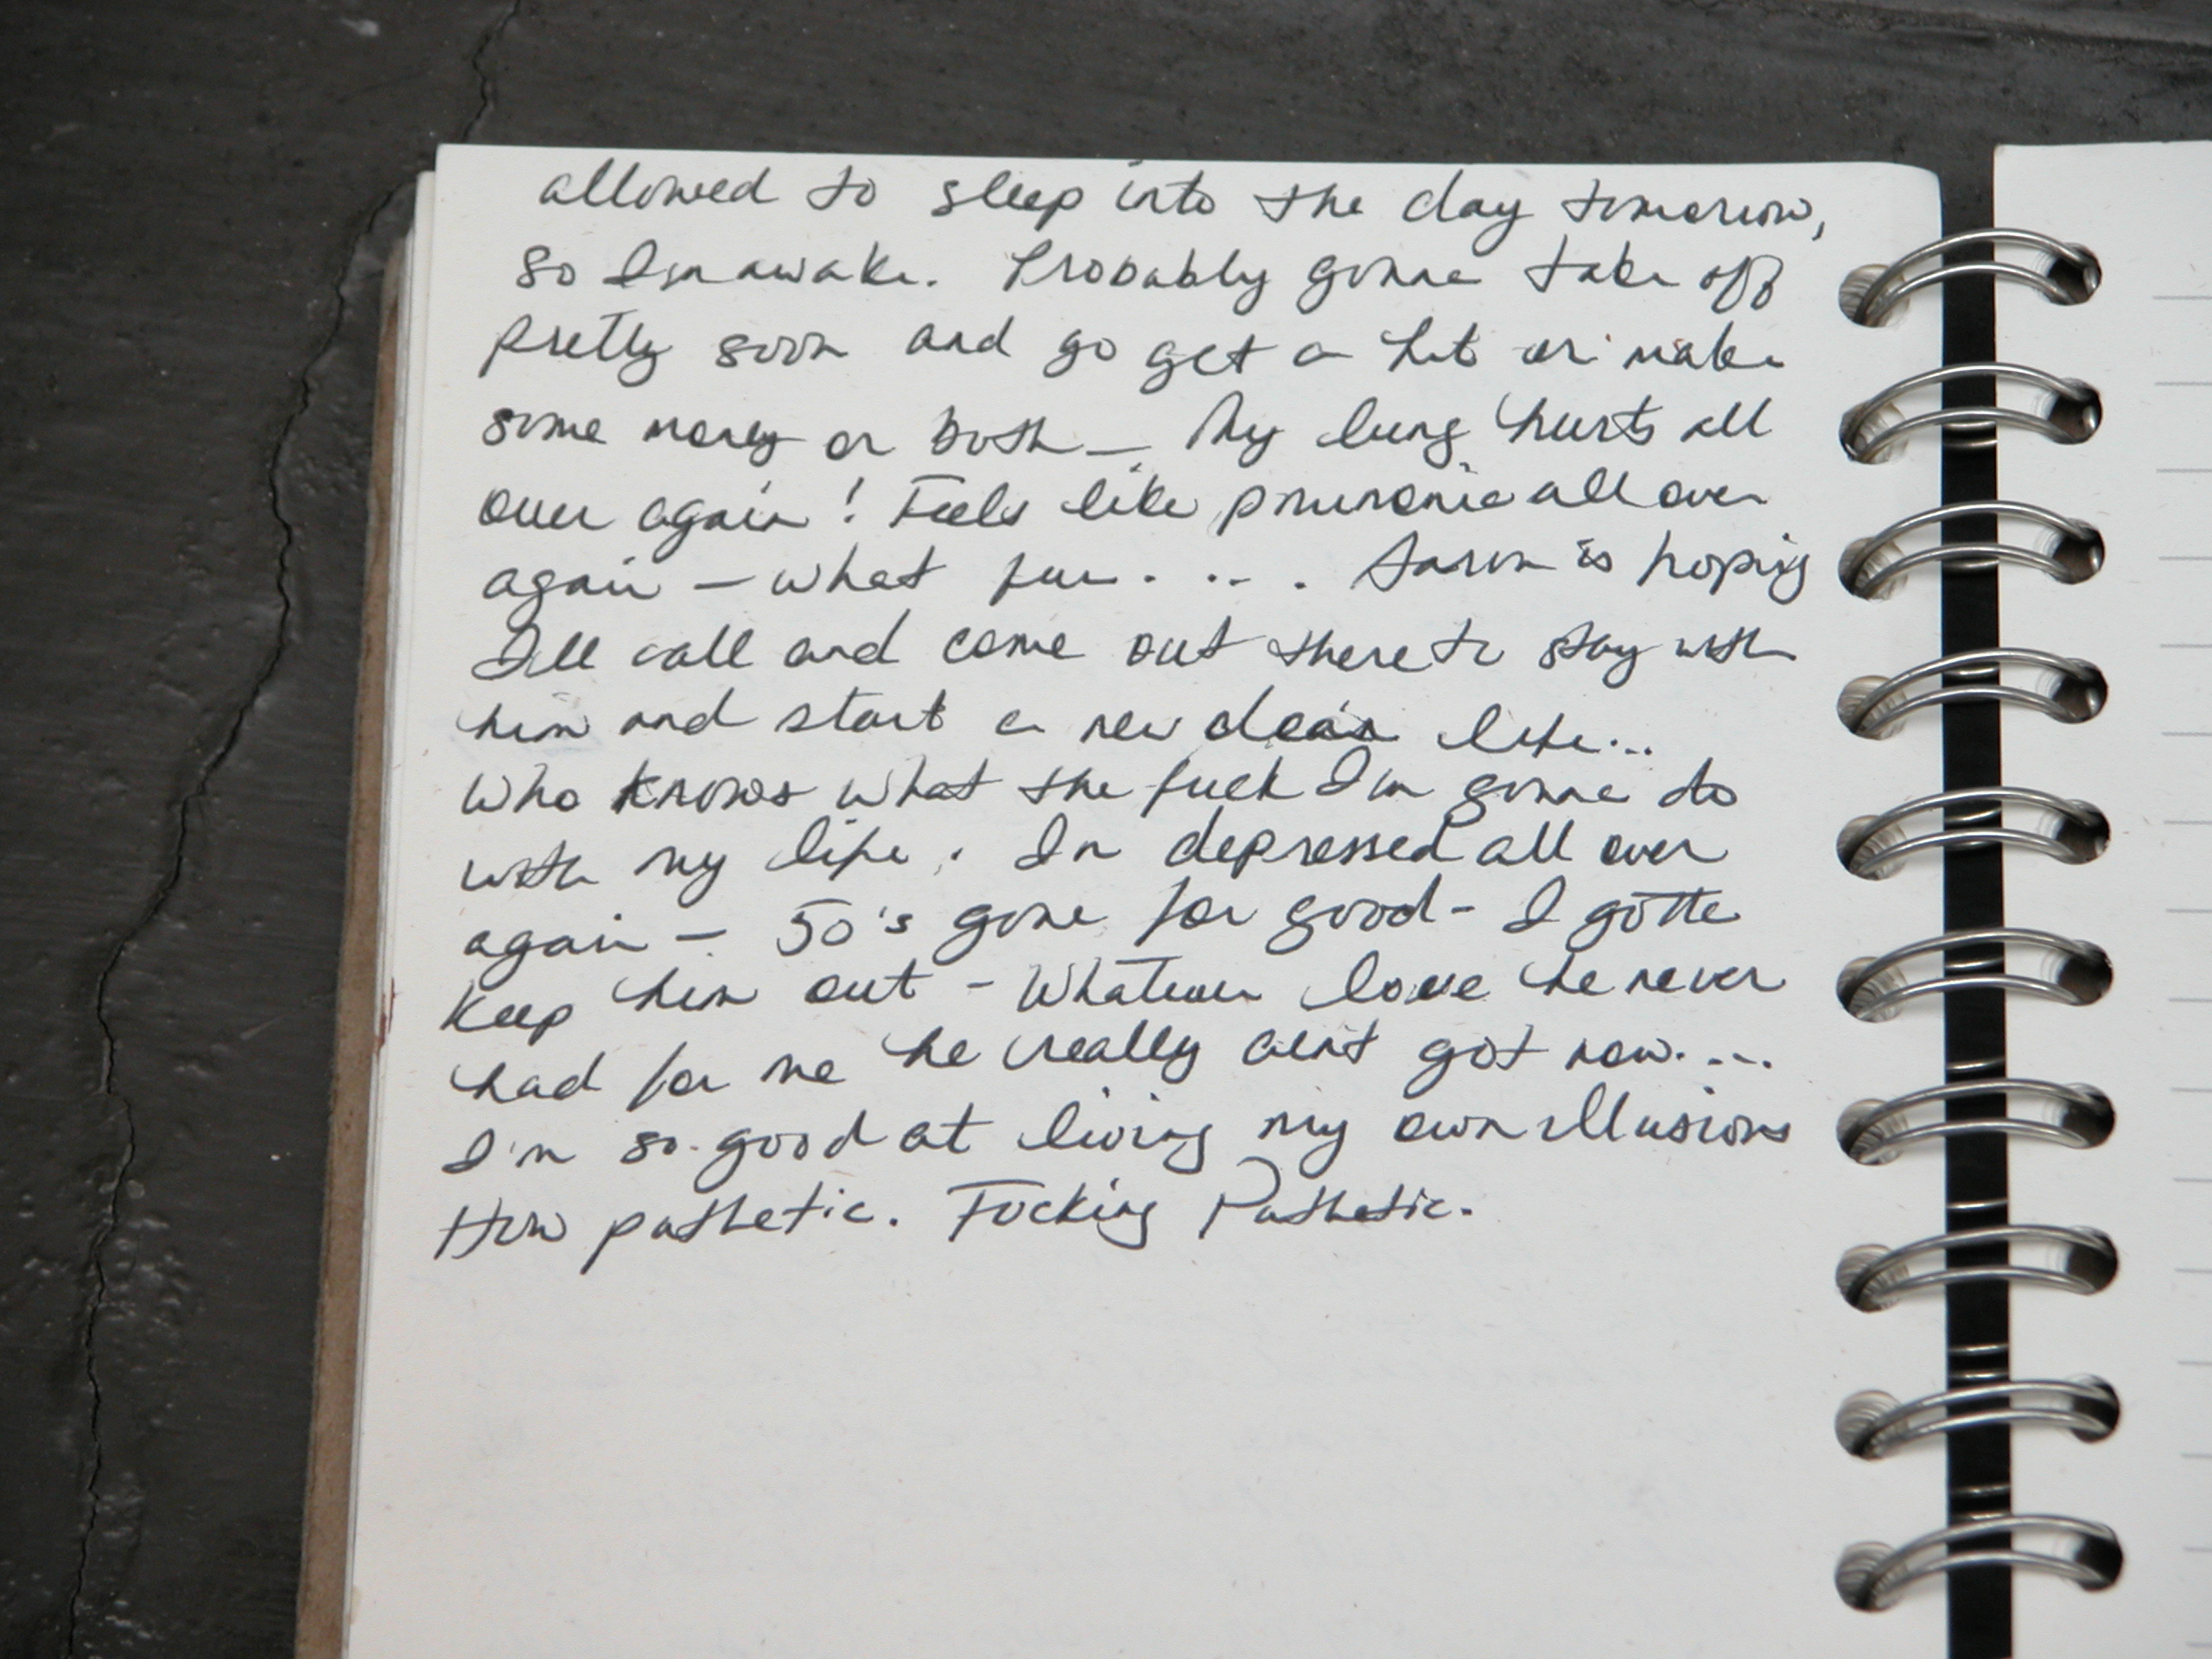 allowed to sleep into the day tomorrow,
so Im awake. Probably gonna take off
pretty soon and go get a hit or make
some money or both — My lung hurts all
over again! Feels like pnumonia all over
again — what fun.... Aaron is hoping
I'll call and come out there to stay with
him and start a new clean life...
Who knows what the fuck I'm gonna do
with my life. Im depressed all over
again — 50's gone for good - I gotta
keep him out - Whatever love he never
had for me he really aint got now....
I'm so good at living my own illusions
How pathetic. Fucking Pathetic.